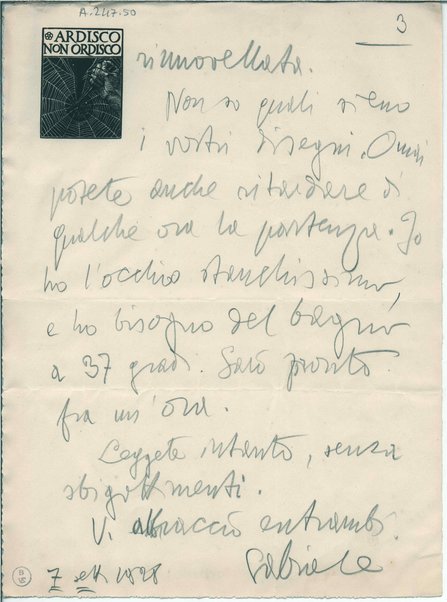 A.247.50
3
ARDISCO
NON ORDISCO
rinnovellata.
Non so quali sieno
i vostri disegni. Omai
potete anche ritardare di
qualche ora la partenza. Io
ho l'occhio stanchissimo,
e ho bisogno del bagno
a 37 gradi. Sarò pronto
fra un'ora.
Leggete intanto, senza
sbigottimenti.
Vi abbraccio entrambi.
Gabriele
7 1928